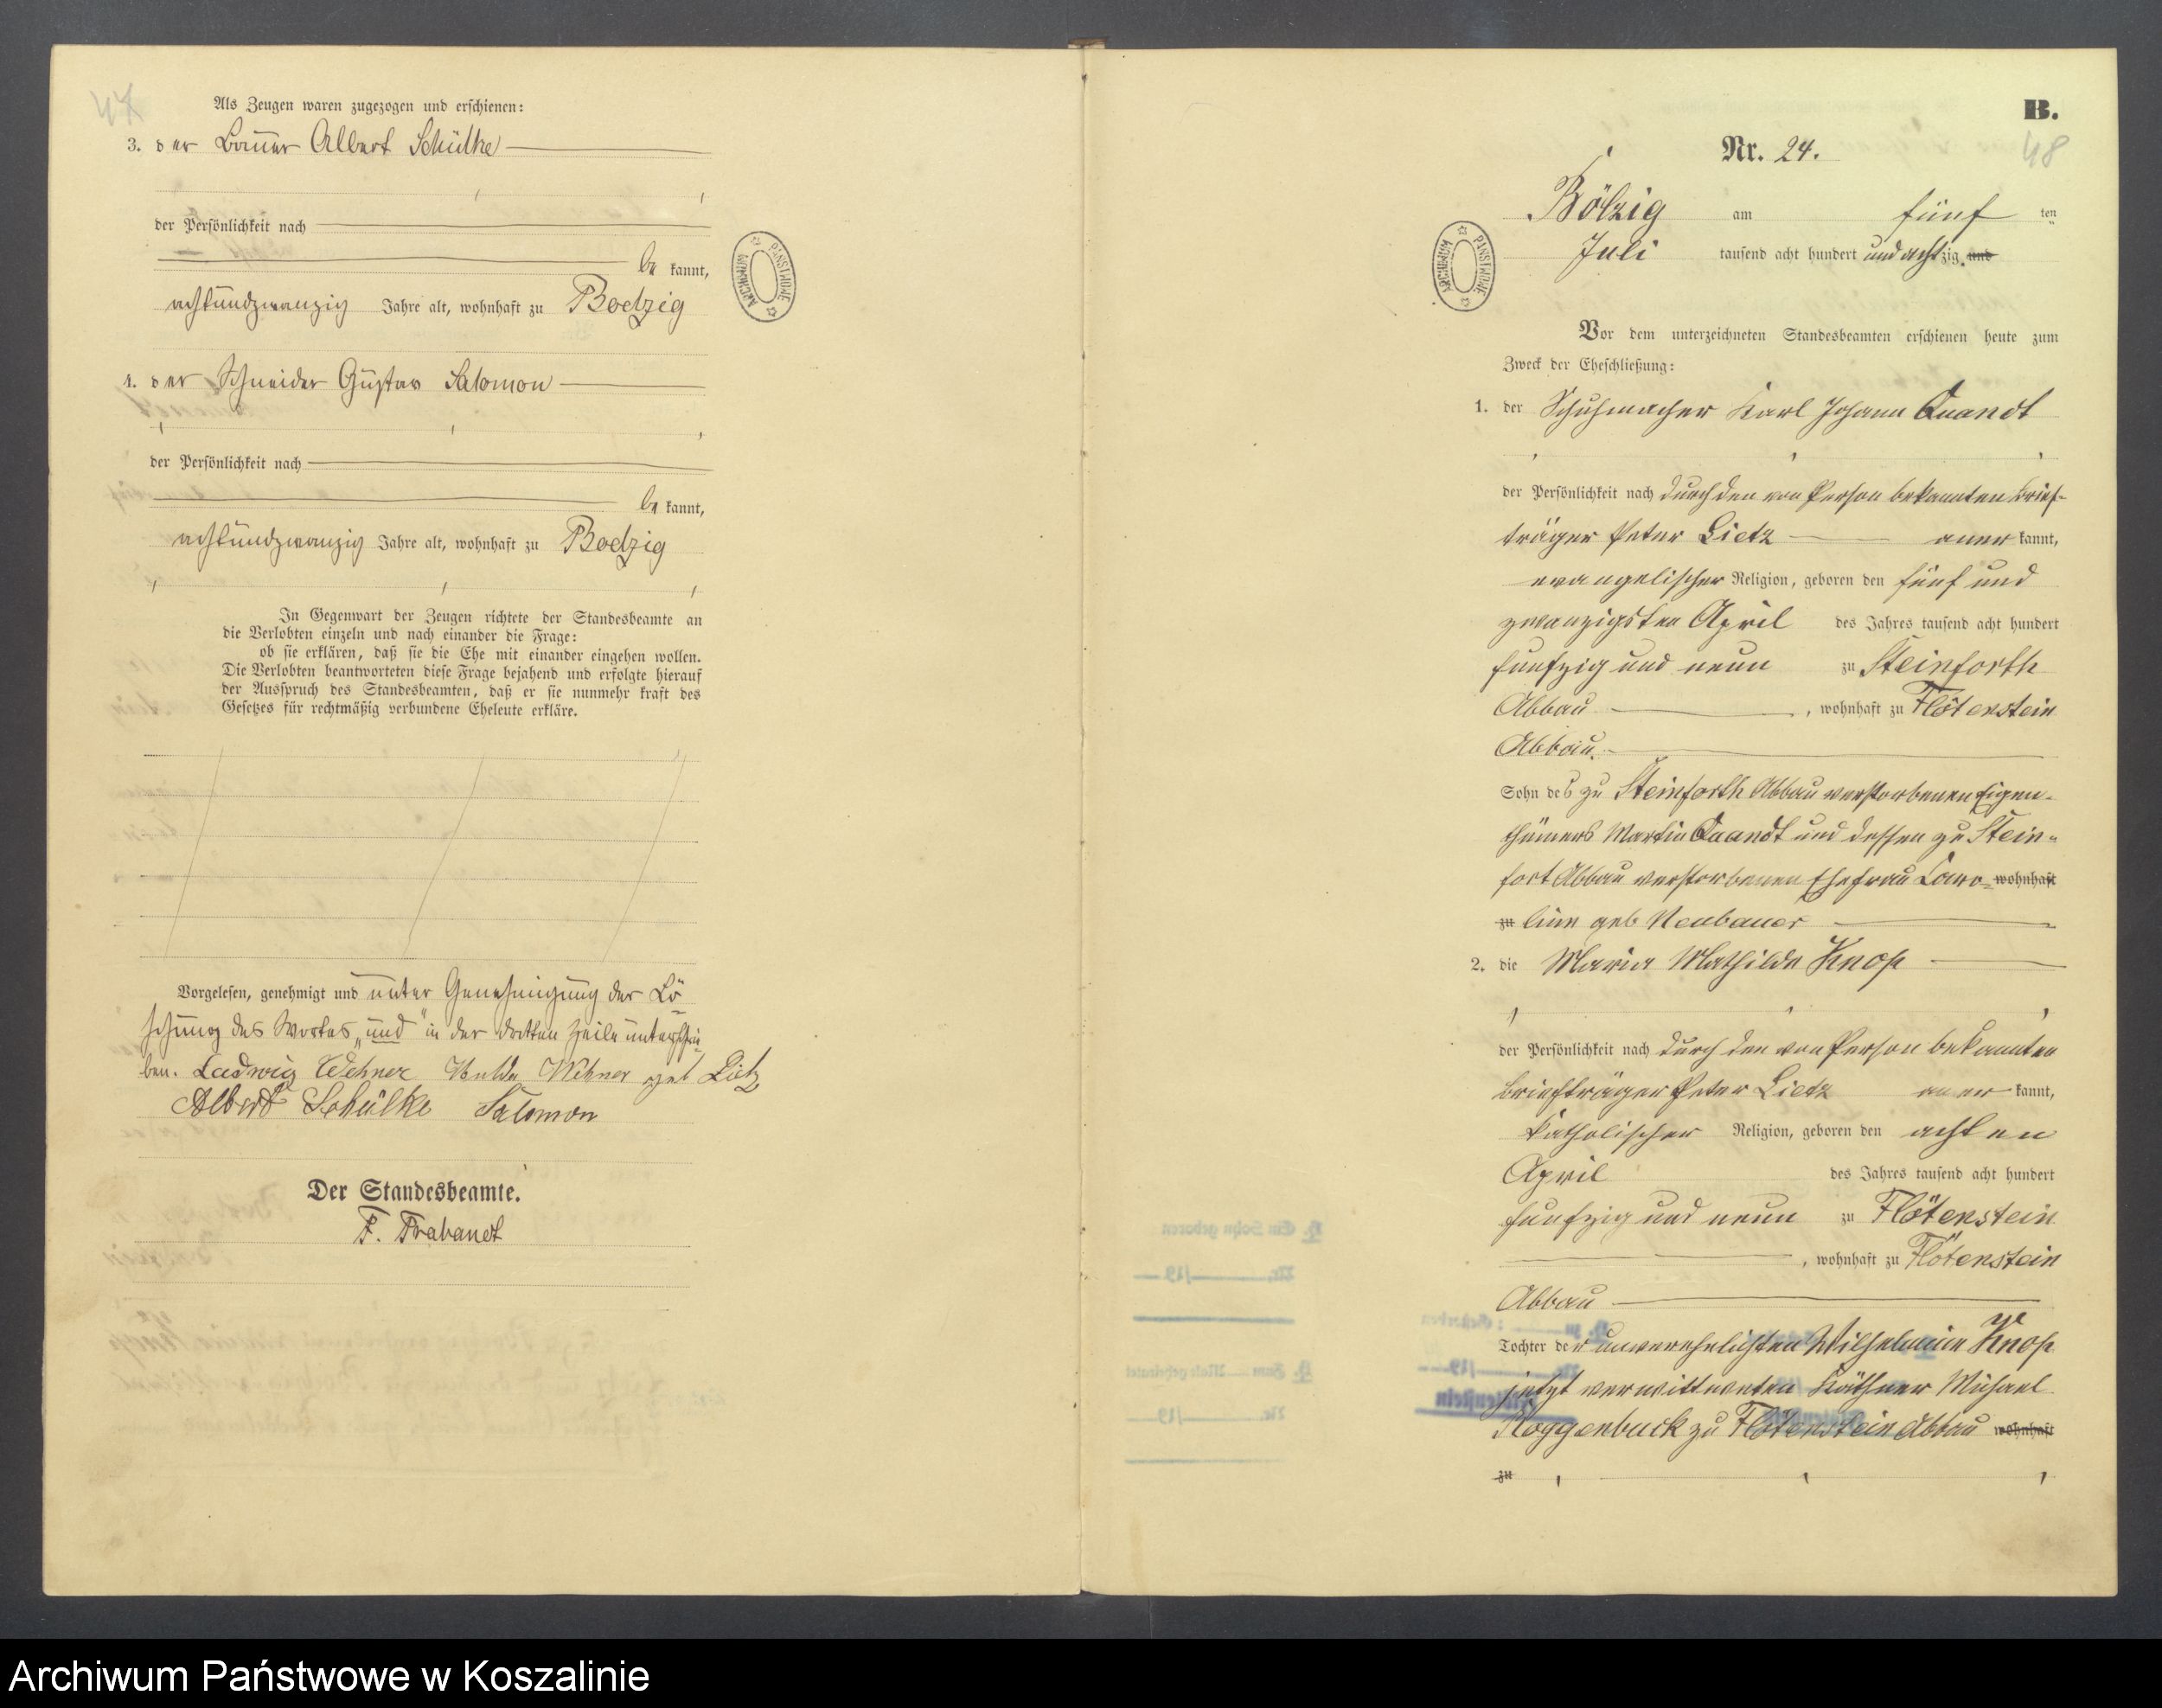 47
Als Zeugen waren zugezogen und erschienen:
3. der Bauer Albert Schülke
der Persönlichkeit nach
be kannt,
achtundzwanzig Jahre alt, wohnhaft zu Boelzig
4. der Schneider Gustav Salomon
der Persönlichkeit nach
be kannt,
achtundzwanzig Jahre alt, wohnhaft zu Boelzig
In Gegenwart der Zeugen richtete der Standesbeamte an
die Verlobten einzeln und nach einander die Frage:
ob sie erklären, daß sie die Ehe mit einander eingehen wollen.
Die Verlobten beantworteten diese Frage bejahend und erfolgte hierauf
der Ausspruch des Standesbeamten, daß er sie nunmehr kraft des
Gesetzes für rechtmäßig verbundene Eheleute erkläre.
Vorgelesen, genehmigt und unter Genehmigung der Lö-
schung des Wortes „und“ in der dritten Zeile unterschrie-
ben. Ludwig Wehner Hulda Wehner geb Lietz
Albert Schülke Salomon
Der Standesbeamte.
F. Trabandt
ARCHIWUM PAŃSTWOWE
B.
48
Nr. 24.
Bölzig am fünf ten
Juli tausend acht hundert und achtzig und
Vor dem unterzeichneten Standesbeamten erschienen heute zum
Zweck der Eheschließung:
1. der Schuhmacher Karl Johann Quandt
der Persönlichkeit nach durch den von Person bekannten Brief-
träger Peter Lietz aner kannt,
evangelischer Religion, geboren den fünf und
zwanzigsten April des Jahres tausend acht hundert
funfzig und neun zu Steinforth
Abbau, wohnhaft zu Flötenstein
Abbau.
Sohn des zu Steinforth Abbau verstorbenen Eigen-
thümers Martin Quandt und dessen zu Stein-
fort Abbau verstorbenen Ehefrau Caro- wohnhaft
zu line geb Neubauer
2. die Maria Mathilde Knop
der Persönlichkeit nach durch den von Person bekannten
Briefträger Peter Lietz aner kannt,
katholischer Religion, geboren den achten
April des Jahres tausend acht hundert
funfzig und neun zu Flötenstein
, wohnhaft zu Flötenstein
Abbau
Tochter der unverehelichten Wilhelmine Knop
jetzt verwittweten Käthner Michael
Roggenbuck zu Flötenstein Abbau wohnhaft
zu
ARCHIWUM PAŃSTWOWE
Archiwum Państwowe w Koszalinie